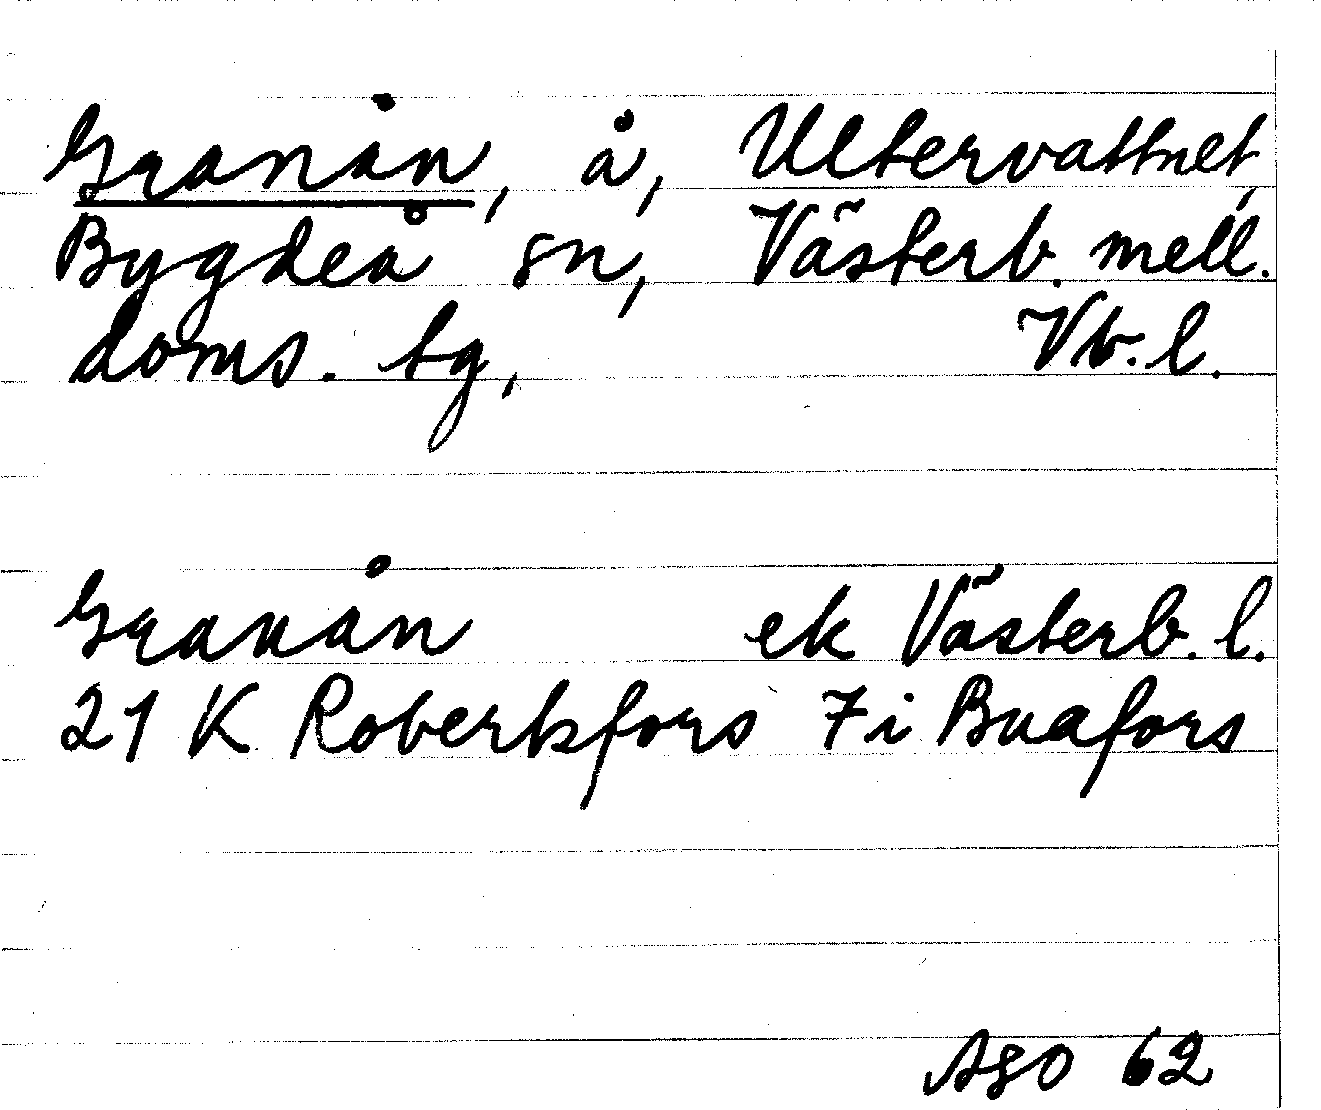 Granån, å, Ultervattnet,
Bygdeå sn, Västerb. mell.
doms. tg, Vb. l.
Granån ek Västerb. l.
21 K Robertsfors 7i Buafors
ASO 62